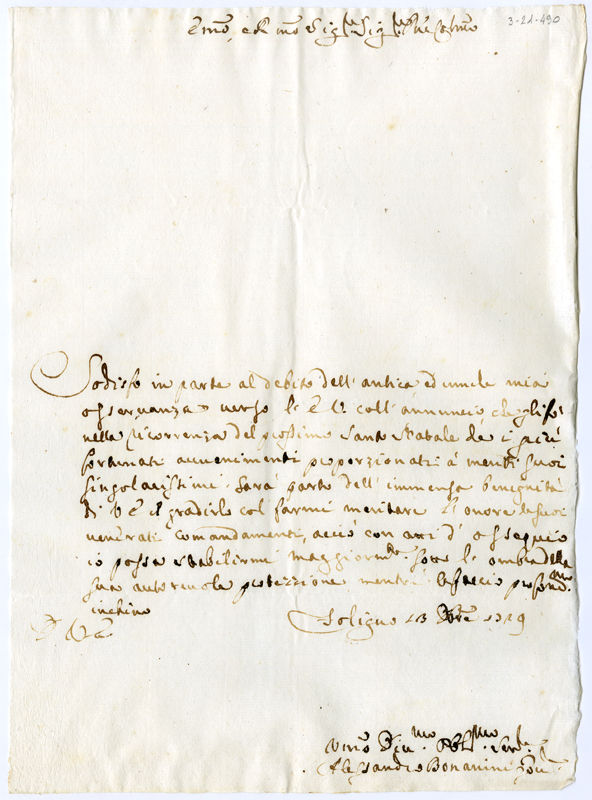 3-21-490
Emo, e R mo Sig.re Sig.re
Sodisfo in parte al debito dell' antica, ed umile mia
osseruanza uerso l' E V. coll' annuncio, che gli fo
nella ricorrenza del prossimo Santo Natale de i più
fortunati auuenimenti proporzionati à meriti suoi
singolarissimi. Sarà parto dell' immensa benignità
di V E il gradirlo col farmi meritare l' onore de suoi
uenerati comandamenti, acciò con atti d' ossequio
io possa stabilirmi maggiormte sotto l' ombra della
sua autoreuole protezzione mentre le faccio profondmo
inchino
D. V. E.
Foligno 13 Xbre 1719
Vmo Diu.mo Obl.mo Serue
Alessandro Bonanini